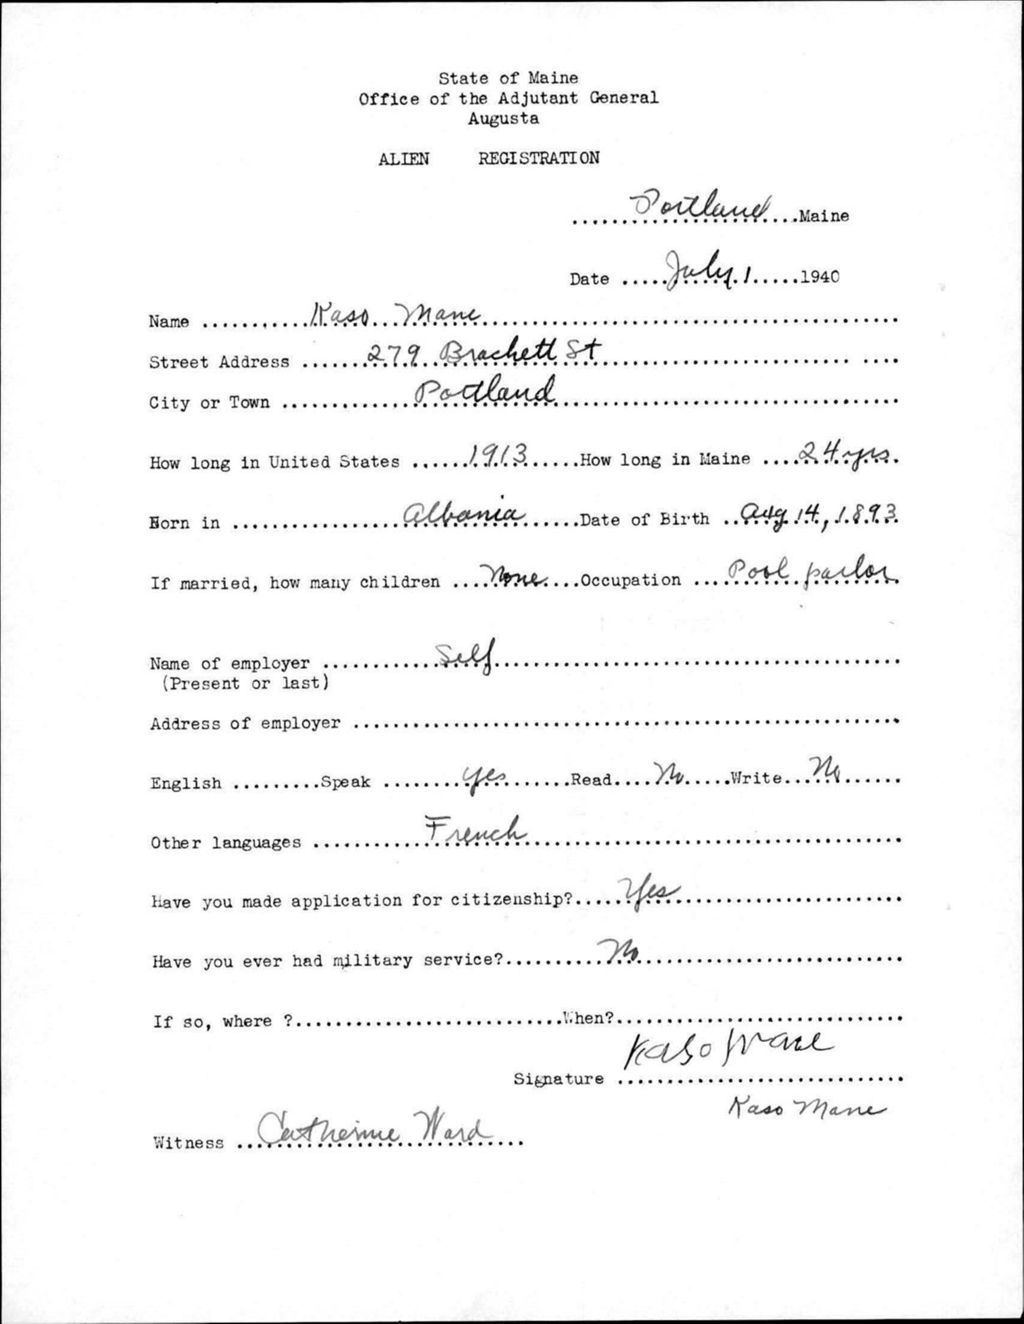 State of Maine
Office of the Adjutant General
Augusta
ALIEN REGISTRATION
.....Portland.....Maine
Date .....July 1.....1940
Name ..........Kaso Mane..........
Street Address .......279 Brackett St..........
City or Town ..........Portland..........
How long in United States ......1913......How long in Maine ....24 yrs.
Born in ..........Albania......Date of Birth ..Aug 14, 1893
If married, how many children ....None....Occupation ...Pool parlor
Name of employer ..........Self..........
(Present or last)
Address of employer ..........
English .........Speak ........Yes.......Read....No.....Write...No......
Other languages ..........French..........
Have you made application for citizenship?.....Yes..........
Have you ever had military service?..........No..........
If so, where ?..........When?..........
Kaso Mane
Signature ..........
Kaso Mane
Witness ..Catherine Ward...